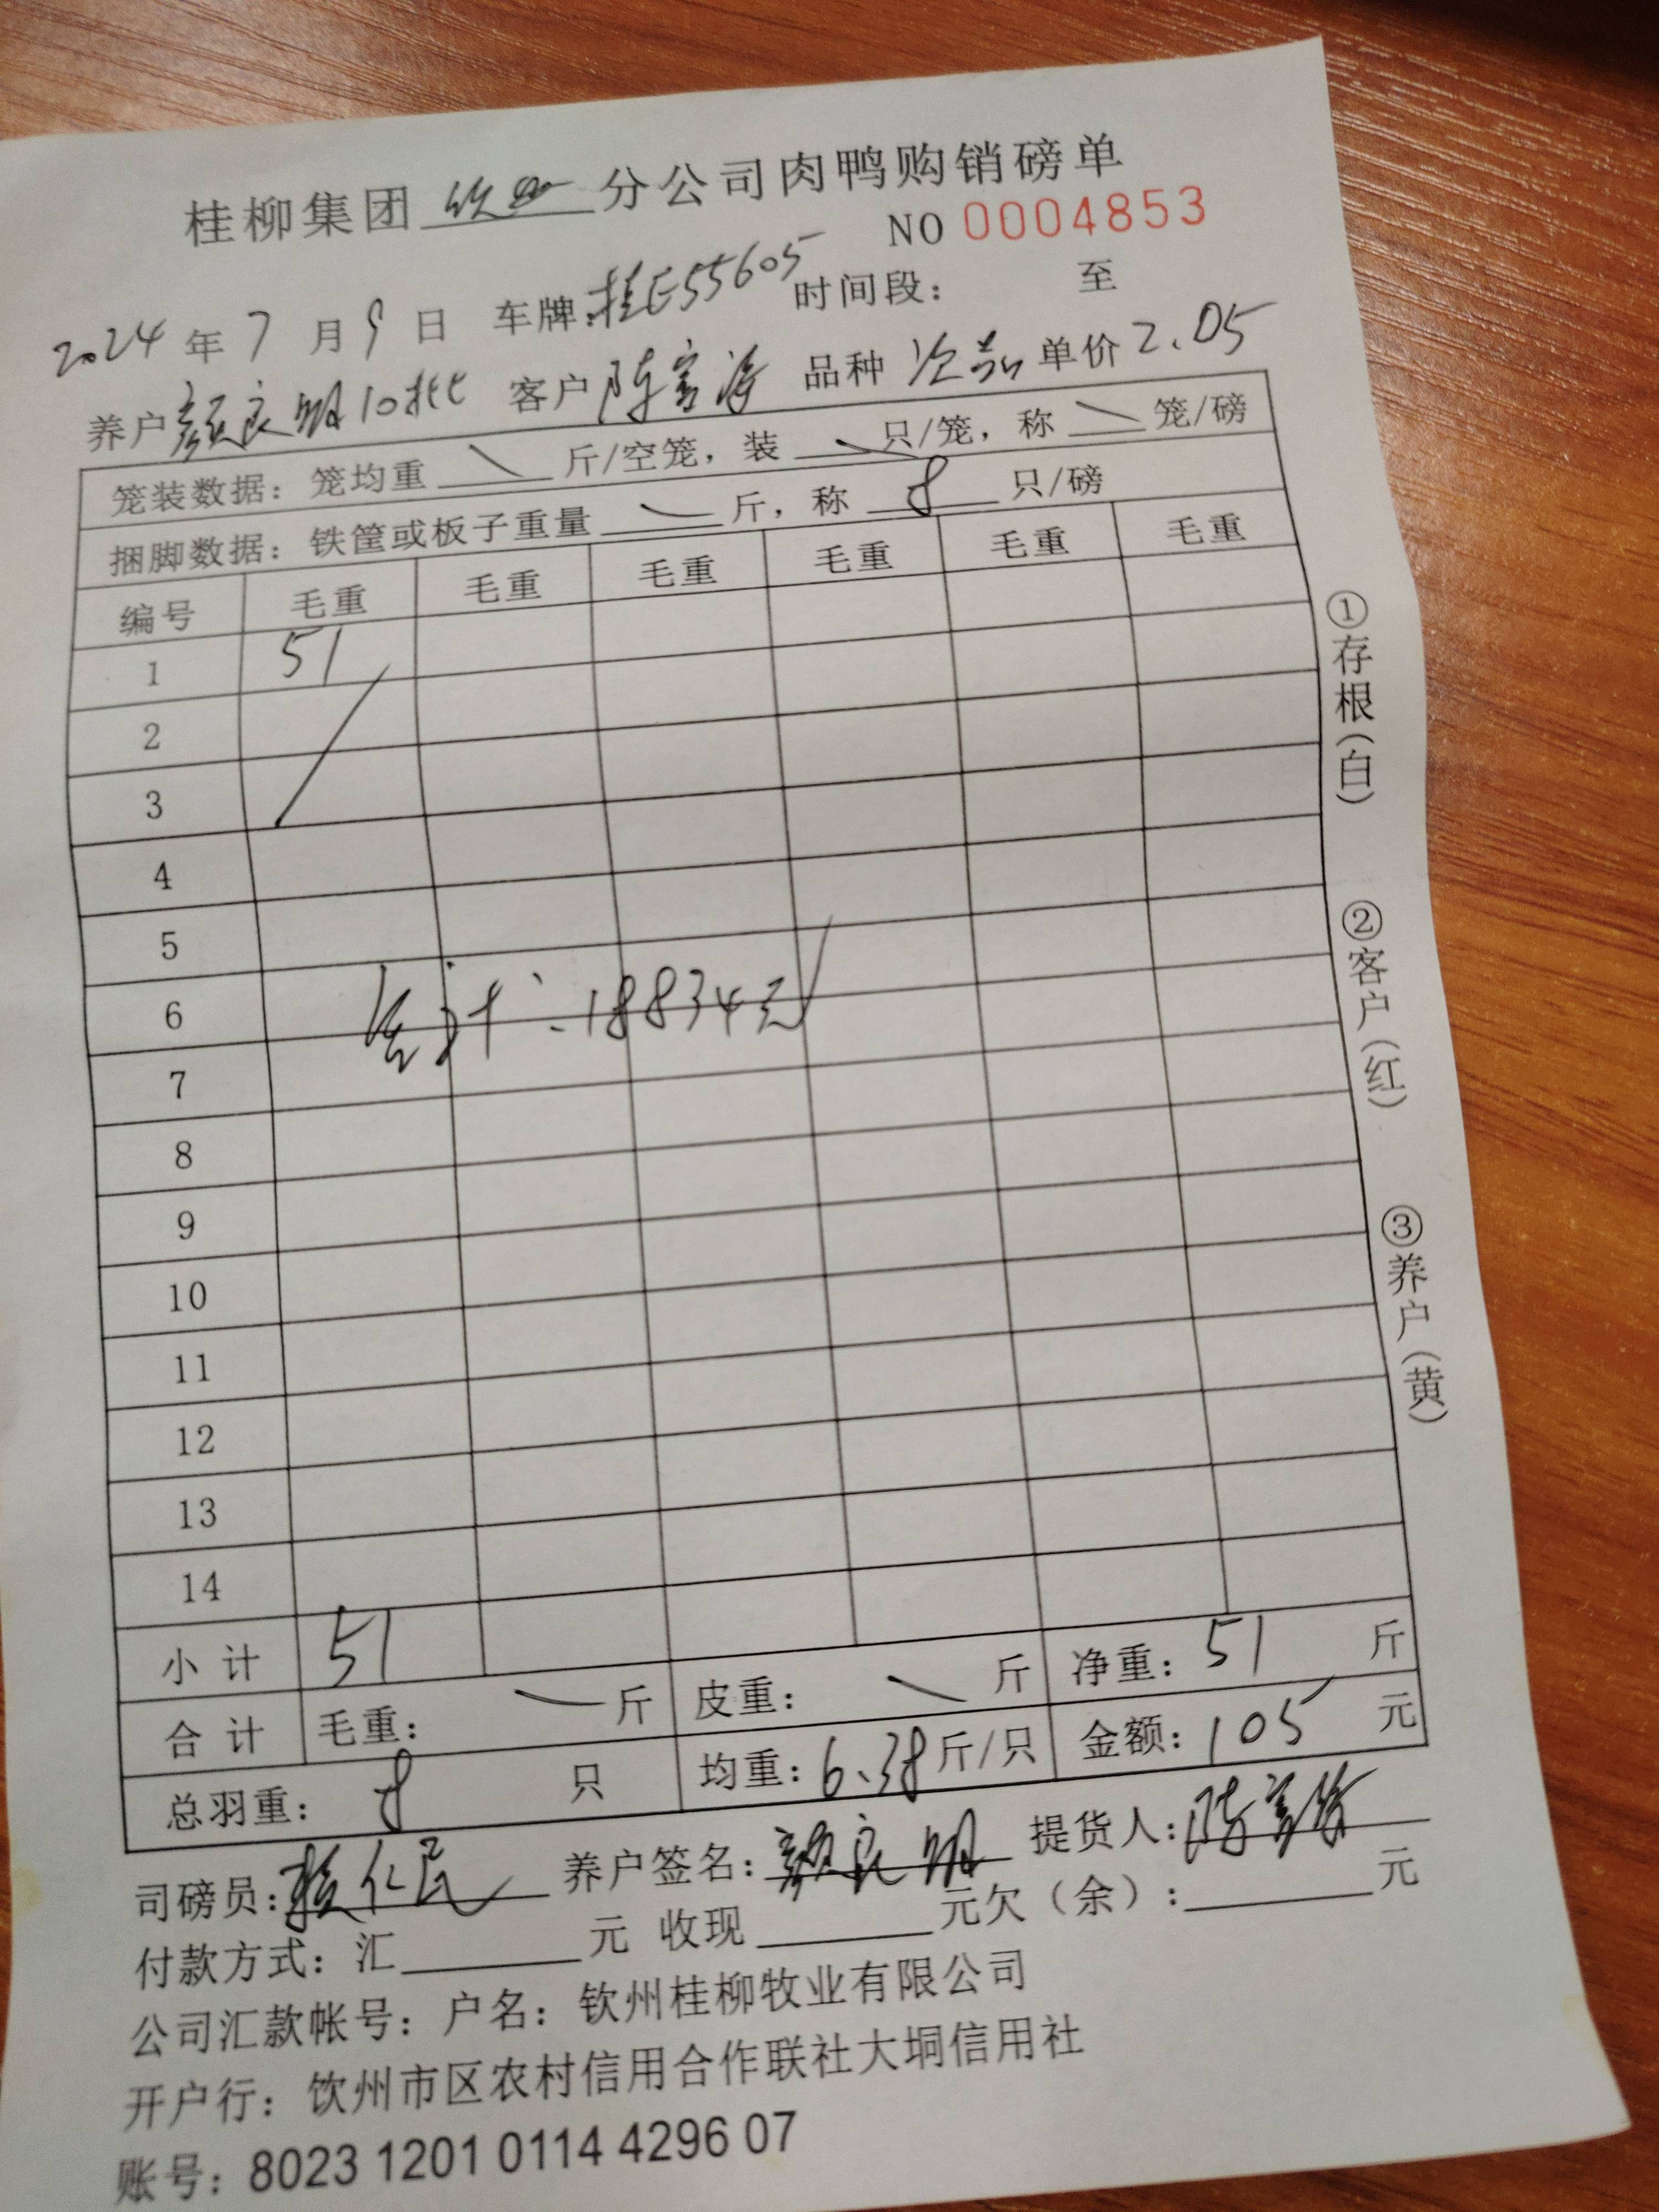 桂柳集团 钦州 分公司肉鸭购销磅单
NO 0004853
2024 年 7 月 9 日 车牌:桂E55605 时间段： 至
养户 颜良明10批 客户 陈富海 品种 次品 单价 2.05
笼装数据：笼均重 斤/空笼，装 只/笼，称 笼/磅
捆脚数据：铁筐或板子重量 斤，称 8 只/磅
编号 毛重 毛重 毛重 毛重 毛重 毛重
1 51
2
3
4
5
6 合计：18834元
7
8
9
10
11
12
13
14
小计 51
合计 毛重： 斤 皮重： 斤 净重：51 斤
总羽重： 8 只 均重：6.38斤/只 金额：105 元
司磅员： 仁民 养户签名：颜良明 提货人：陈富海
付款方式：汇 元 收现 元欠（余）： 元
公司汇款帐号：户名：钦州桂柳牧业有限公司
开户行：钦州市区农村信用合作联社大垌信用社
账号：8023 1201 0114 4296 07
①存根（白）
②客户（红）
③养户（黄）